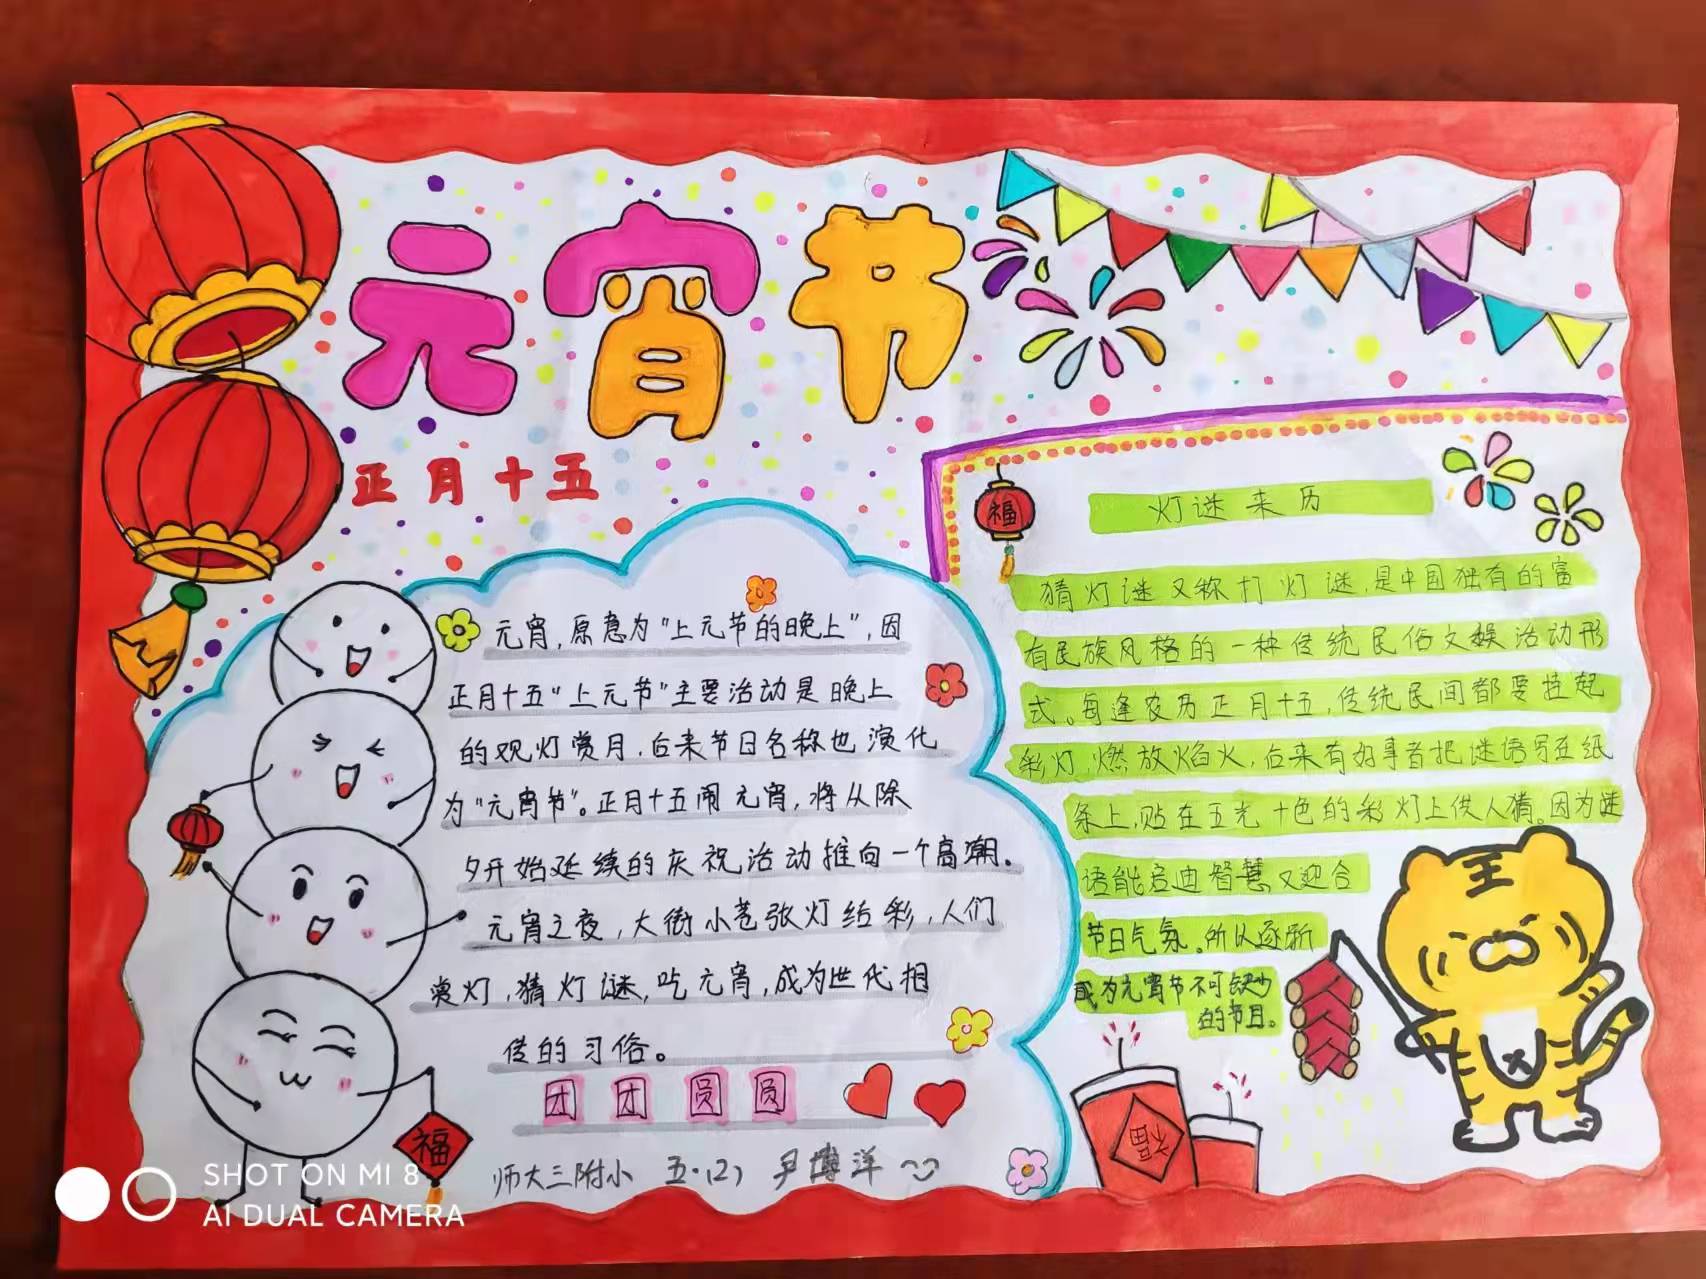 元宵节
正月十五
元宵,原意为“上元节的晚上”,因
正月十五“上元节”主要活动是晚上
的观灯赏月,后来节日名称也演化
为“元宵节”。正月十五闹元宵,将从除
夕开始延续的庆祝活动推向一个高潮。
元宵之夜,大街小巷张灯结彩,人们
赏灯,猜灯谜,吃元宵,成为世代相
传的习俗。
团团圆圆
师大三附小 五·(2) 尹博洋
福
福
灯谜来历
猜灯谜又称打灯谜,是中国独有的富
有民族风格的一种传统民俗文娱活动形
式。每逢农历正月十五,传统民间都要挂起
彩灯,燃放焰火,后来有好事者把谜语写在纸
条上,贴在五光十色的彩灯上供人猜。因为谜
语能启迪智慧又迎合
节日气氛。所以逐渐
成为元宵节不可缺少
的节目。
王
福
SHOT ON MI 8
AI DUAL CAMERA